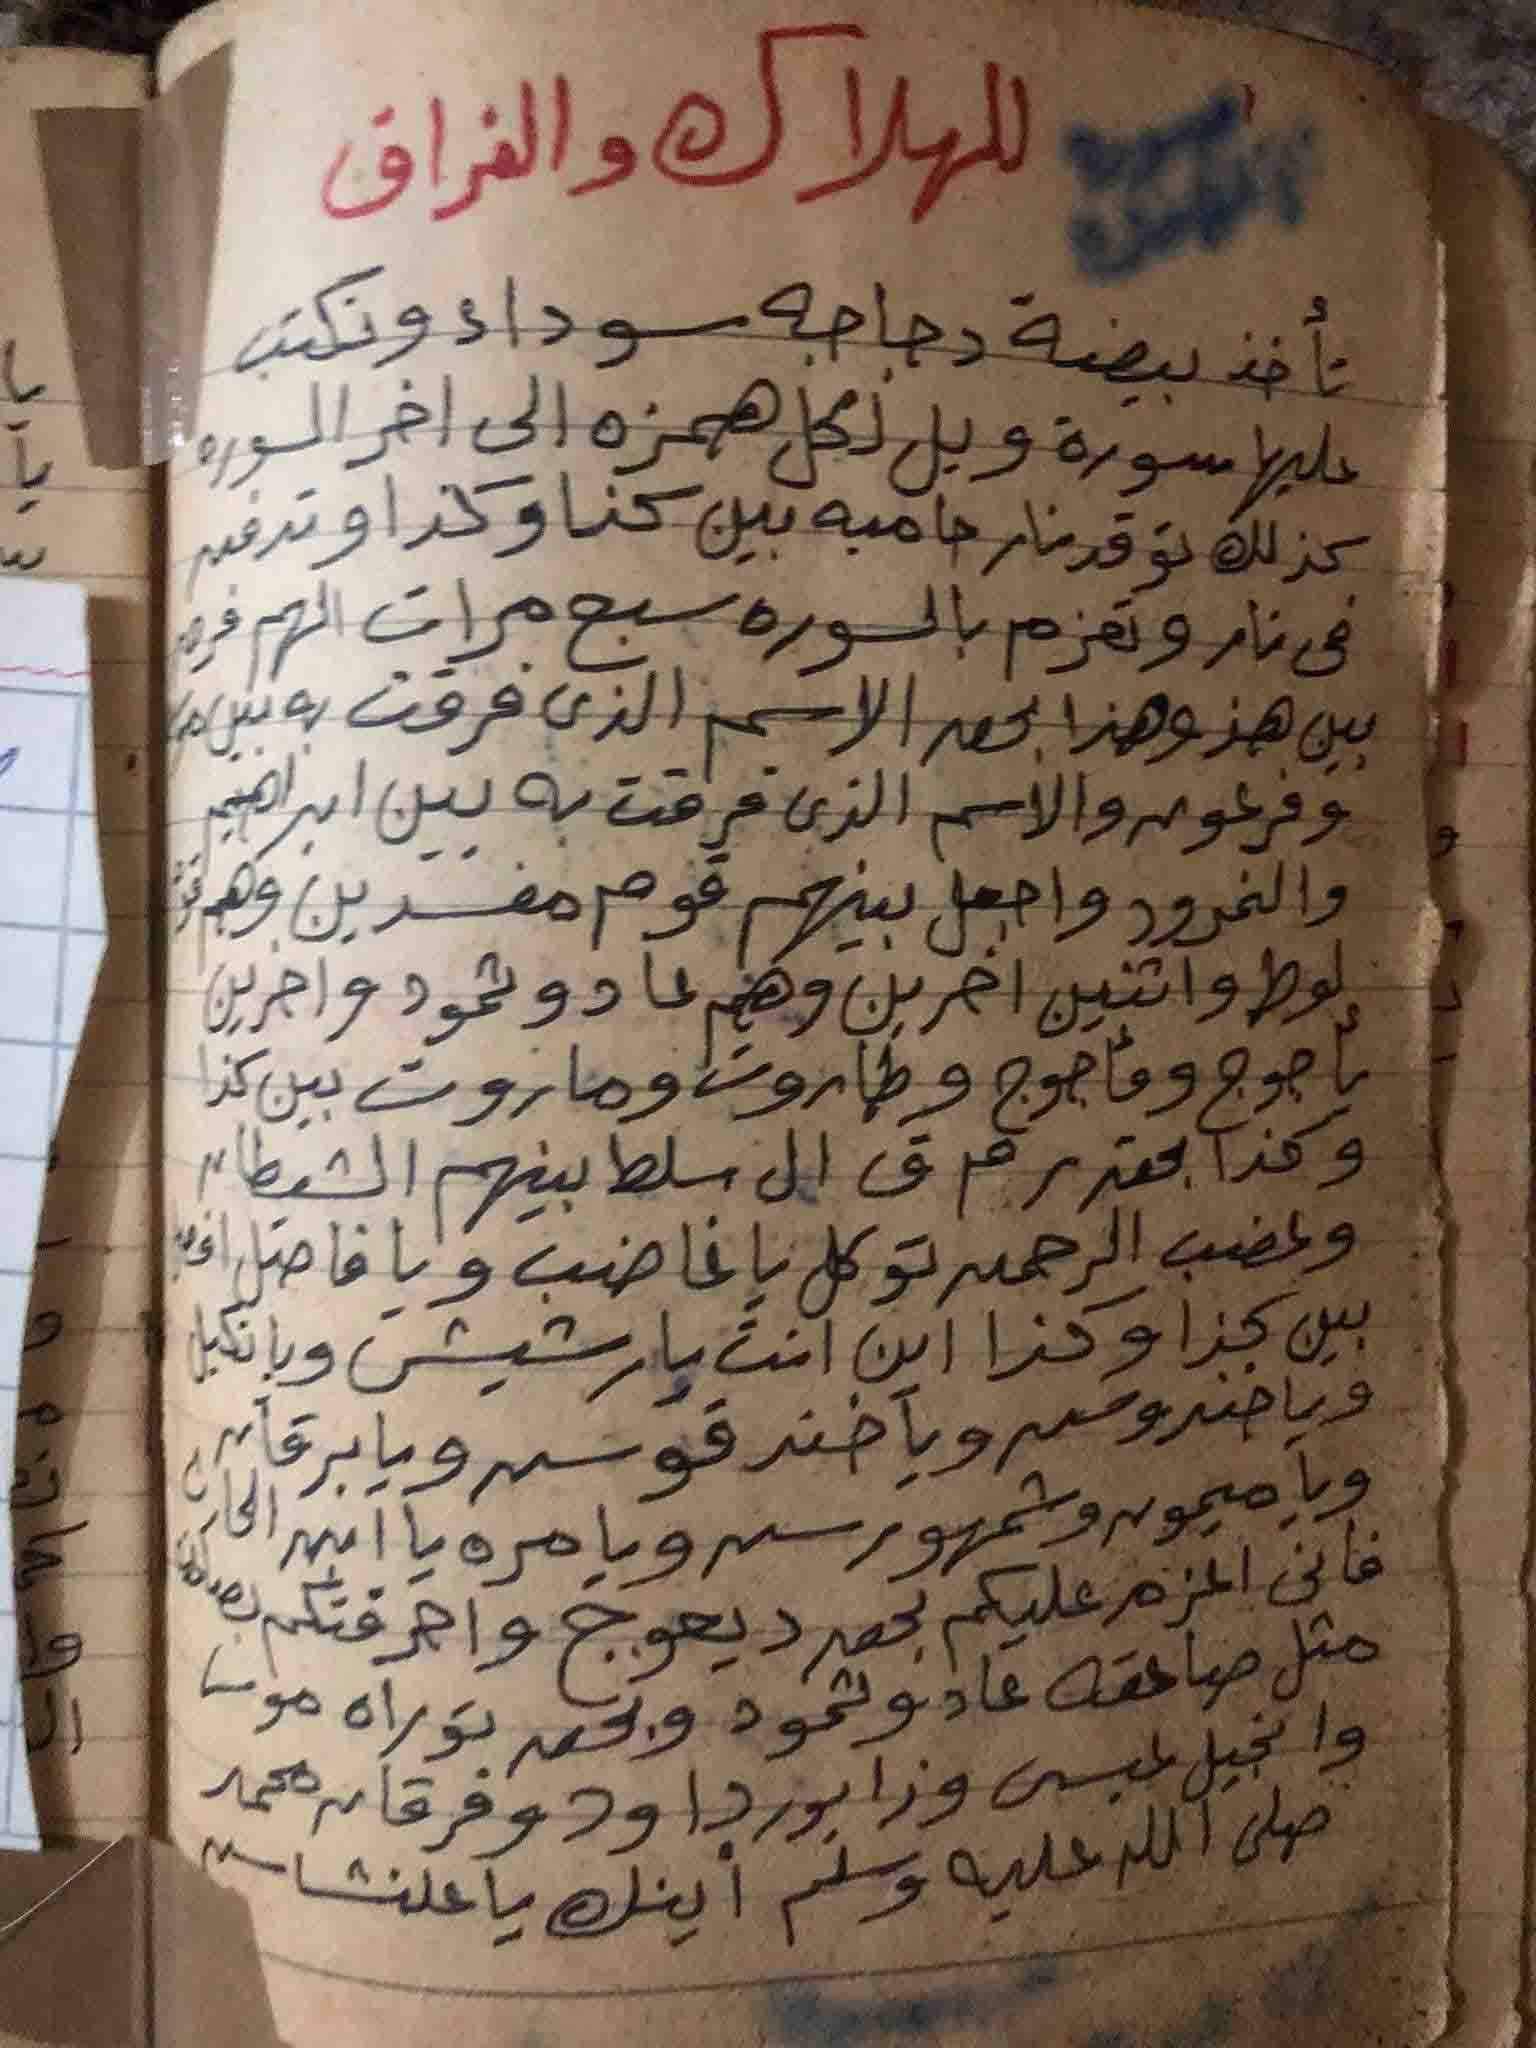 للهلاك والفراق
تأخذ بيضة دجاجه سوداء وتكتب
عليها سورة ويل لكل همزه الى اخر السوره
كذلك توقد نار حاميه بين كذا وكذا وتدفن
فى نار وتعزم بالسوره سبع مرات الهم فرق
بين هذ وهذا بحق الاسم الذى فرقت به بين
وفرعون والاسم الذى فرقت به بين ابراهيم
والنمرود واجعل بينهم قوم مفسدين وهم قوم
لوط واثنين اخرين وهم عاد وثمود واخرين
يأجوج ومأجوج وهاروت وماروت بين كذا
وكذا بحق ر م ق ال سلط بينهم الشيطان
وغضب الرحمن توكل يا غاضب ويا فاصل
بين كذا وكذا اين انت يا رشيش ويا نكيل
ويا خندروس ويا خندقوس ويا برقان
ويا ميمون وشمهورس ويا مره يا ابن الحارث
فانى اعزم عليكم بحق ديعوج واحرقتكم
مثل صاعقه عاد وثمود وبحق توراه موسى
وانجيل عيسى وزابور داود وفرقان محمد
صلى الله عليه وسلم أينك يا علنشاس
يا
يا